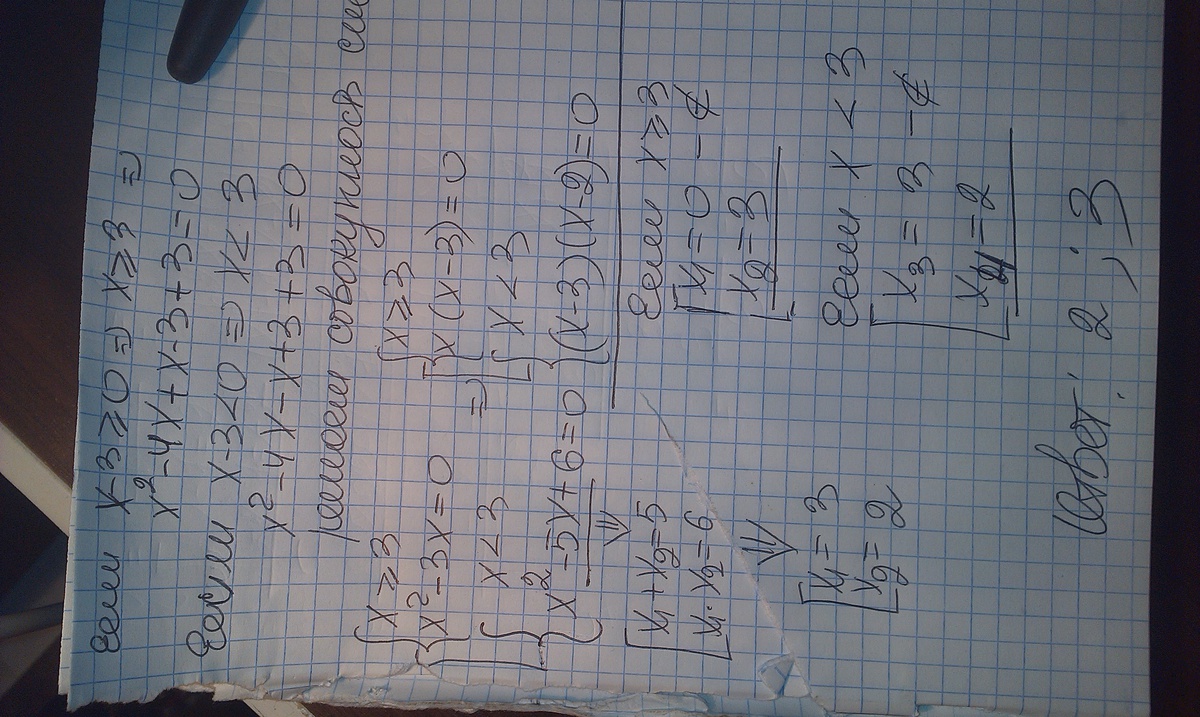 Если x-3≥0 ⇒ x≥3 ⇒
x²-4x+x-3+3=0
Если x-3<0 ⇒ x<3
x²-4x-x+3+3=0
решаем совокупность
[ { x≥3
{ x²-3x=0
{ x<3
{ x²-5x+6=0
⇒ [ { x≥3
{ x(x-3)=0
{ x<3
{ (x-3)(x-2)=0
⇓
[ x₁+x₂=5
x₁·x₂=6
⇓
[ x₁=3
x₂=2
Если x≥3
[ x₁=0 -∉
x₂=3
Если x<3
[ x₃=3 -∉
x₄=2
Ответ: 2; 3